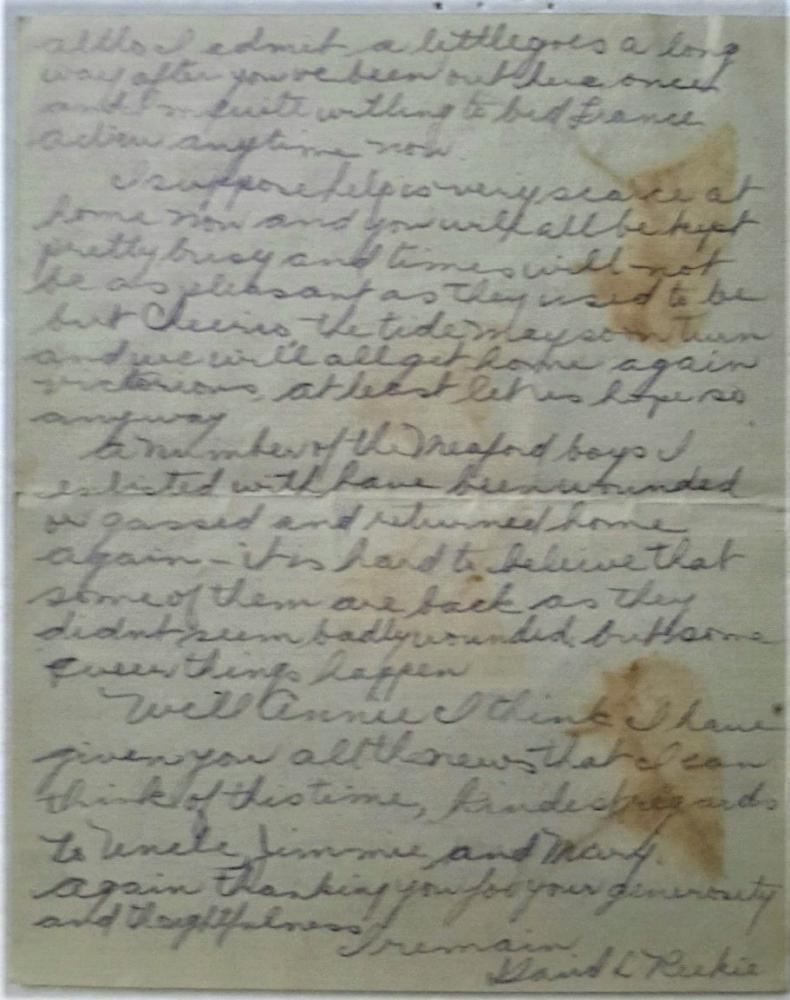 altho I admit a little goes a long
way after you've been out here once
and I'm quite willing to bid France
adieu anytime now.
I suppose help is very scarce at
home now and you will all be kept
pretty busy and times will not
be as pleasant as they used to be
but Cheerio the tide may soon turn
and we will all get home again
victorious, at least let us hope so
anyway
A number of the Meaford boys I
enlisted with have been wounded
or gassed and returned home
again – it is hard to believe that
some of them are back as they
didnt seem badly wounded, but some
queer things happen
Well Annie I think I have
given you all the news that I can
think of this time, kindest regards
to Uncle, Jimmie, and Mary.
again thanking you for your generosity
and thoughtfulness
I remain
David L Reekie